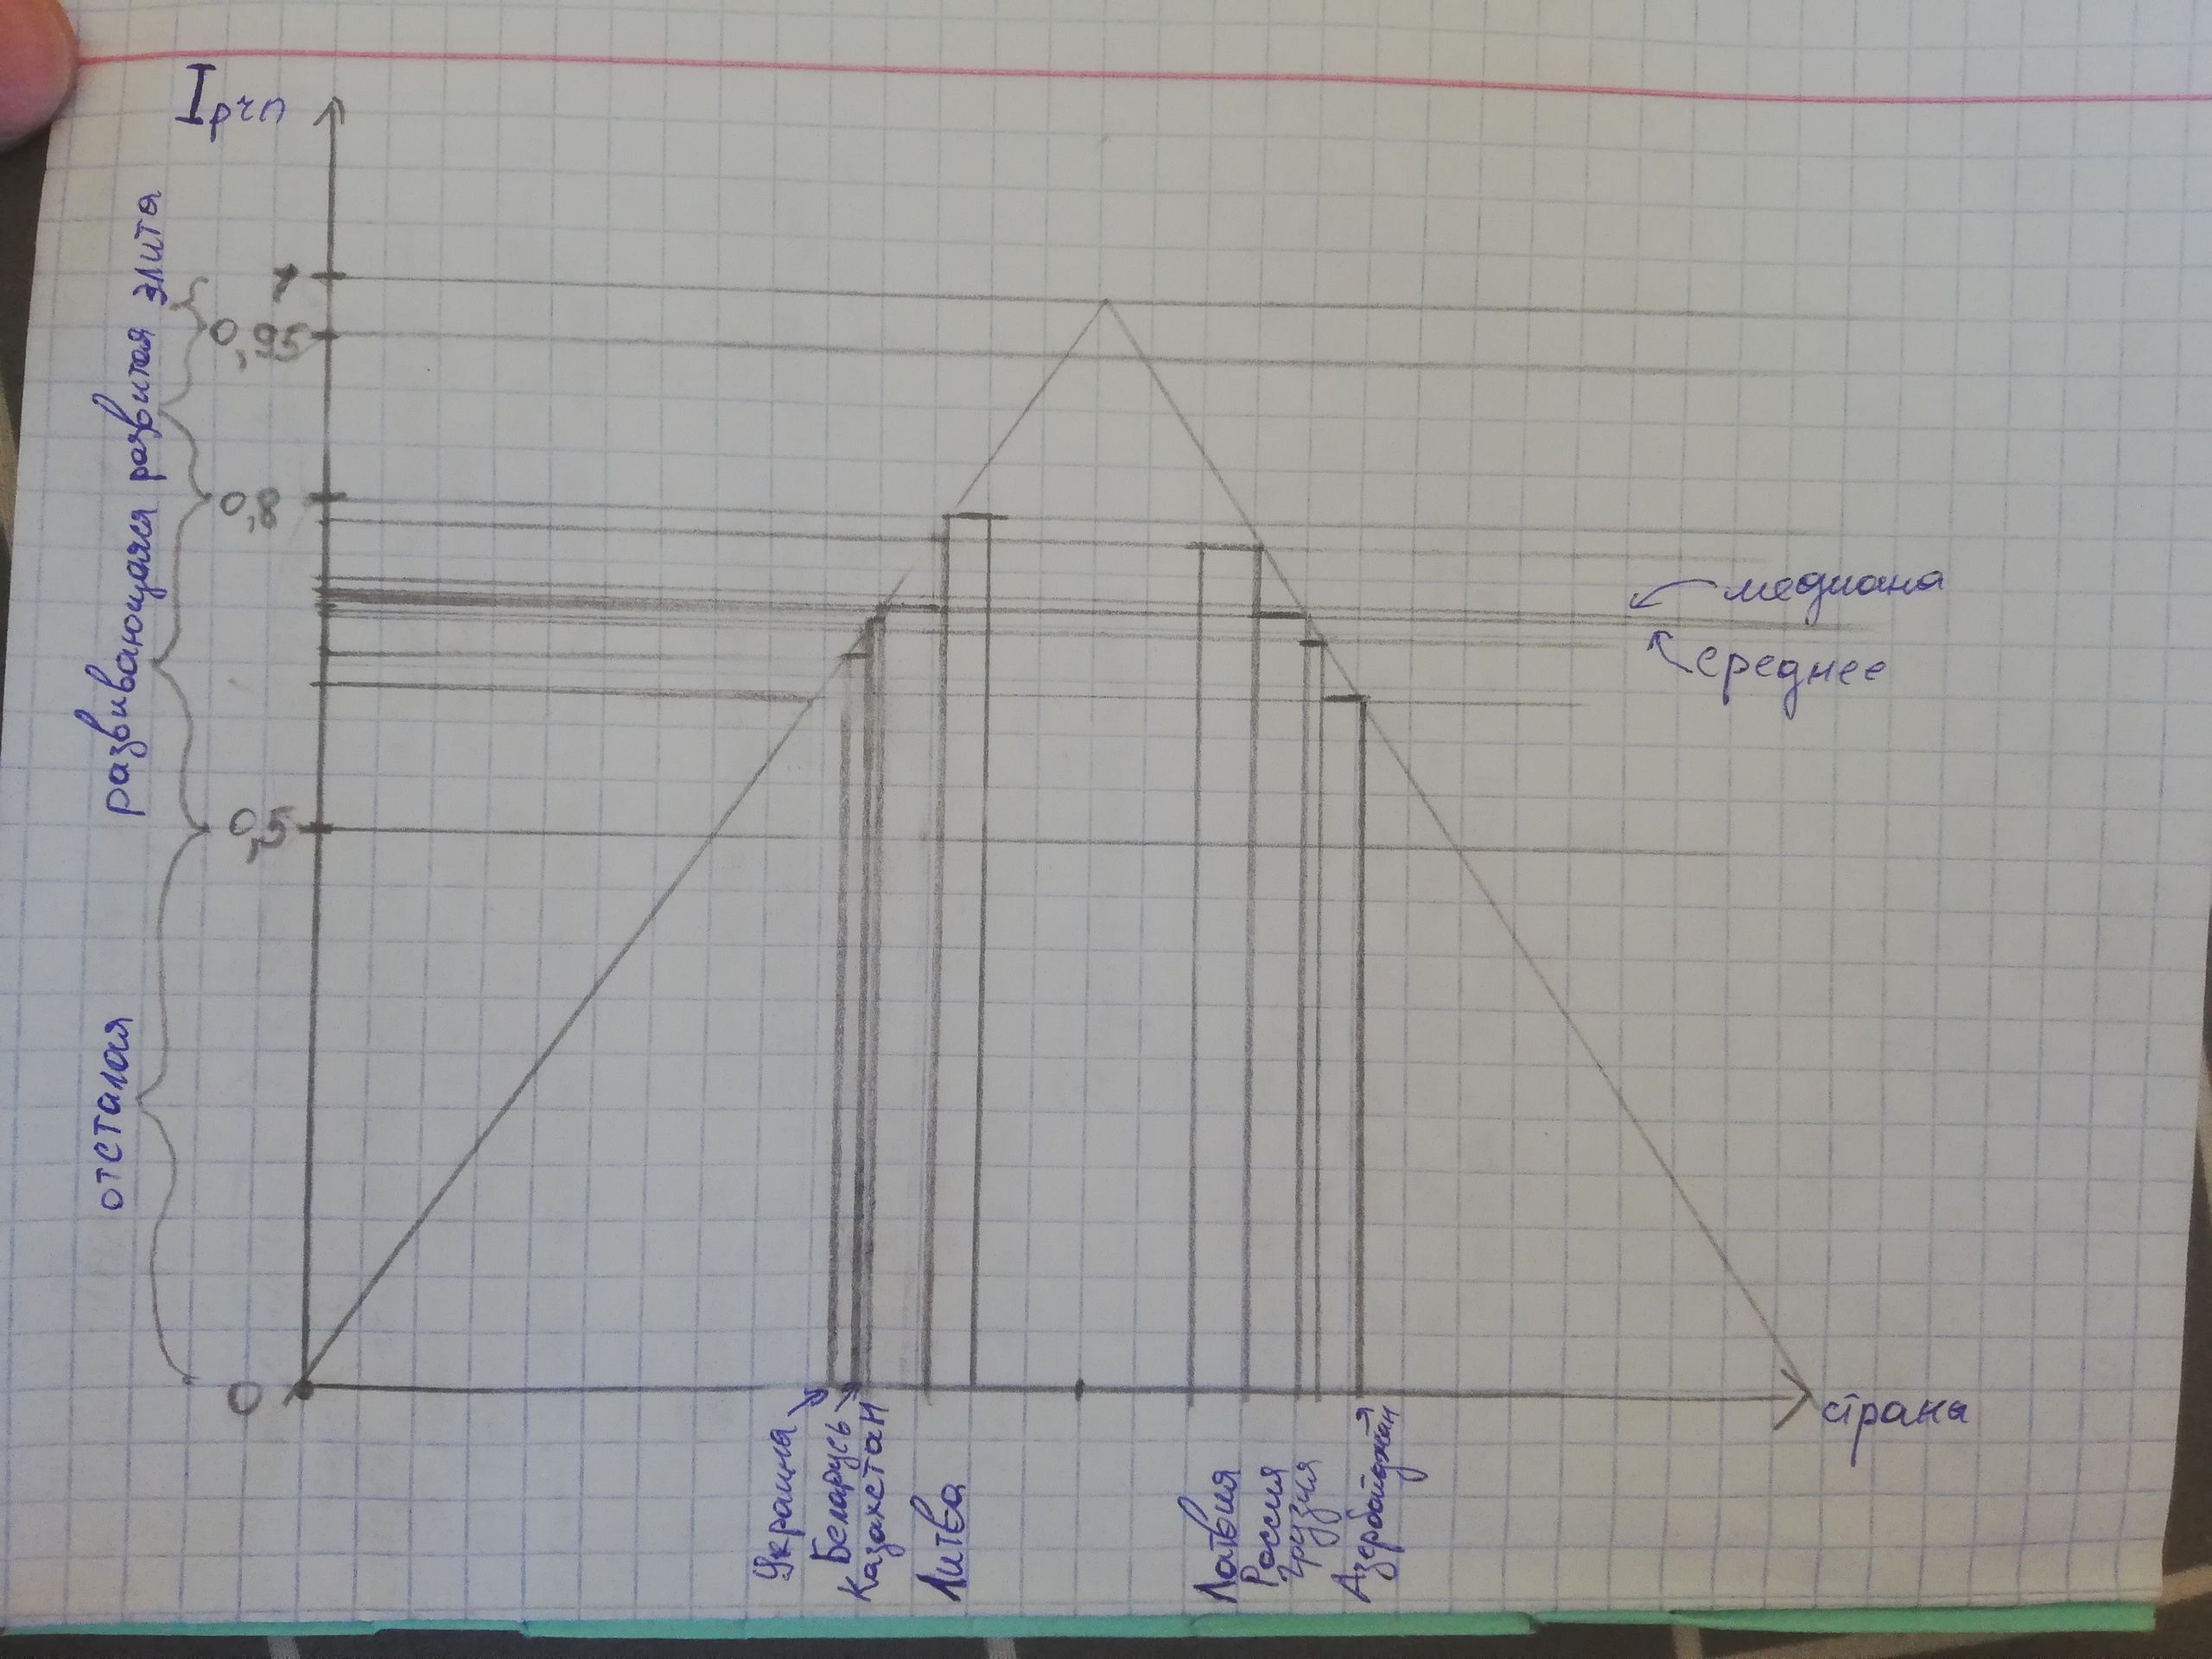 Iрчп
элита
развитая
развивающаяся
отсталая
1
0,95
0,8
0,5
0
медиана
среднее
страны
Украина
Беларусь
Казахстан
Литва
Латвия
Россия
Грузия
Азербайджан